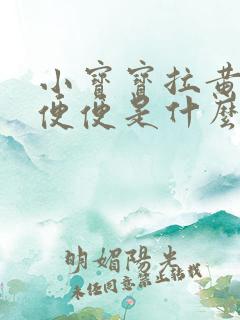 小寶寶拉黃
便便是什麼
明媚陽光
未任同意禁止轉載